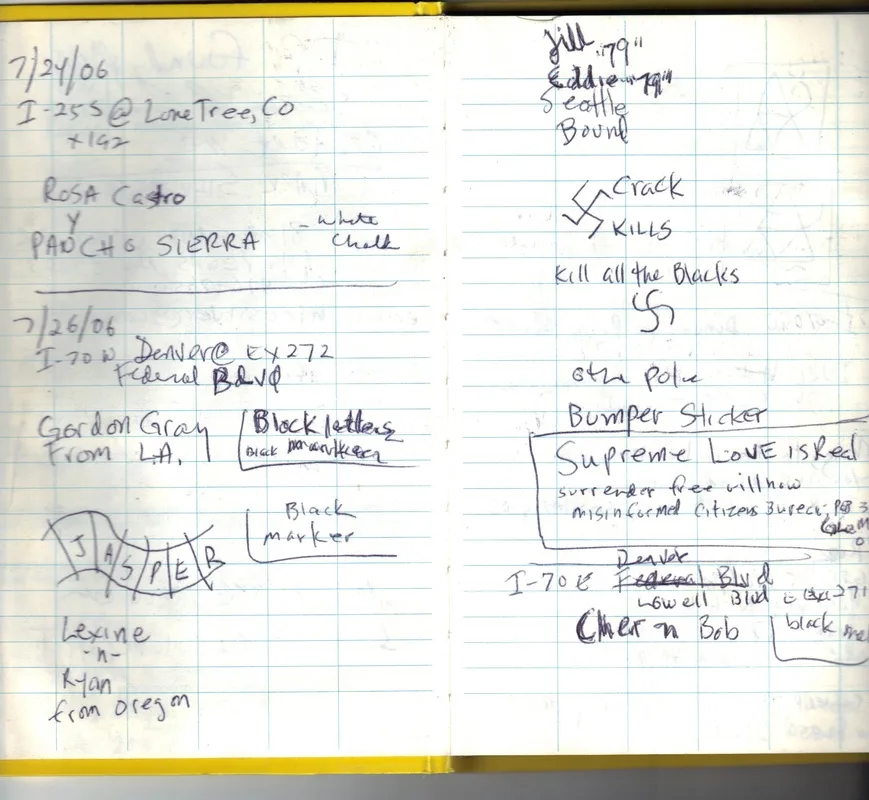 7/24/06
I-25S @ LoneTree, CO
x192
ROSA Castro
Y
PANCHO SIERRA
- White
Chalk
7/26/06
I-70 W Denver@ EX 272
Federal Blvd
Gordon Gray
From L.A.
Black letters
Black
Black
marker
JASPER
Lexine
-n-
Ryan
from Oregon
Jill "79"
Eddie "79"
Seattle
Bound
Crack
KILLS
Kill all the Blacks
Bumper Sticker
Supreme LOVE is Real
surrender free will now
misinformed Citizens
Denver
I-70 E Federal Blvd
Lowell Blvd
Cher n Bob
black